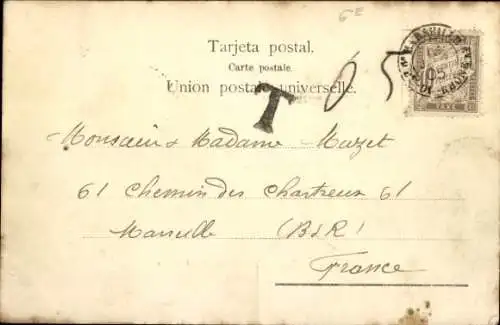 6E
Tarjeta postal.
Carte postale.
Union postale universelle.
T
05
05
TAXE
Monsieur & Madame Mazet
61 Chemin des Chartreux 61
Marseille (B&R)
France